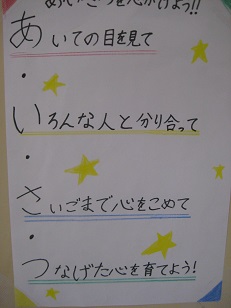 あいさつを心がけよう!!
あいての目を見て
・
いろんな人と分り合って
・
さいごまで心をこめて
・
つなげた心を育てよう!